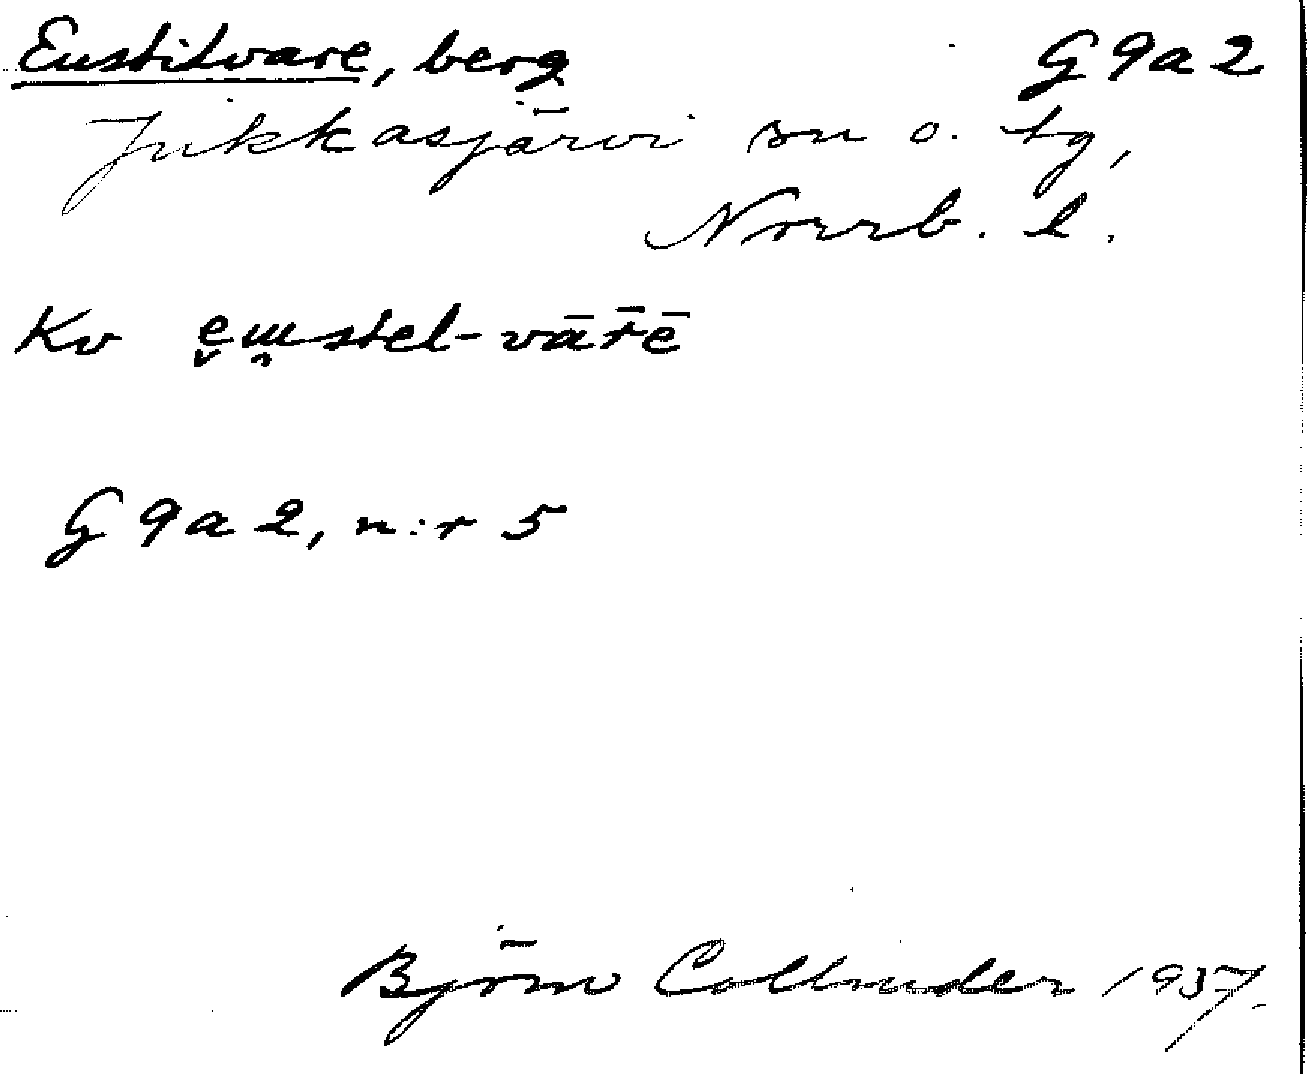 Eustilvare, berg G 9a 2
Jukkasjärvi sn o. tg,
Norrb. l.
Kv e̬ɯ̯stel-vār̄ē
G 9a 2, n:r 5
Björn Collinder 1937.